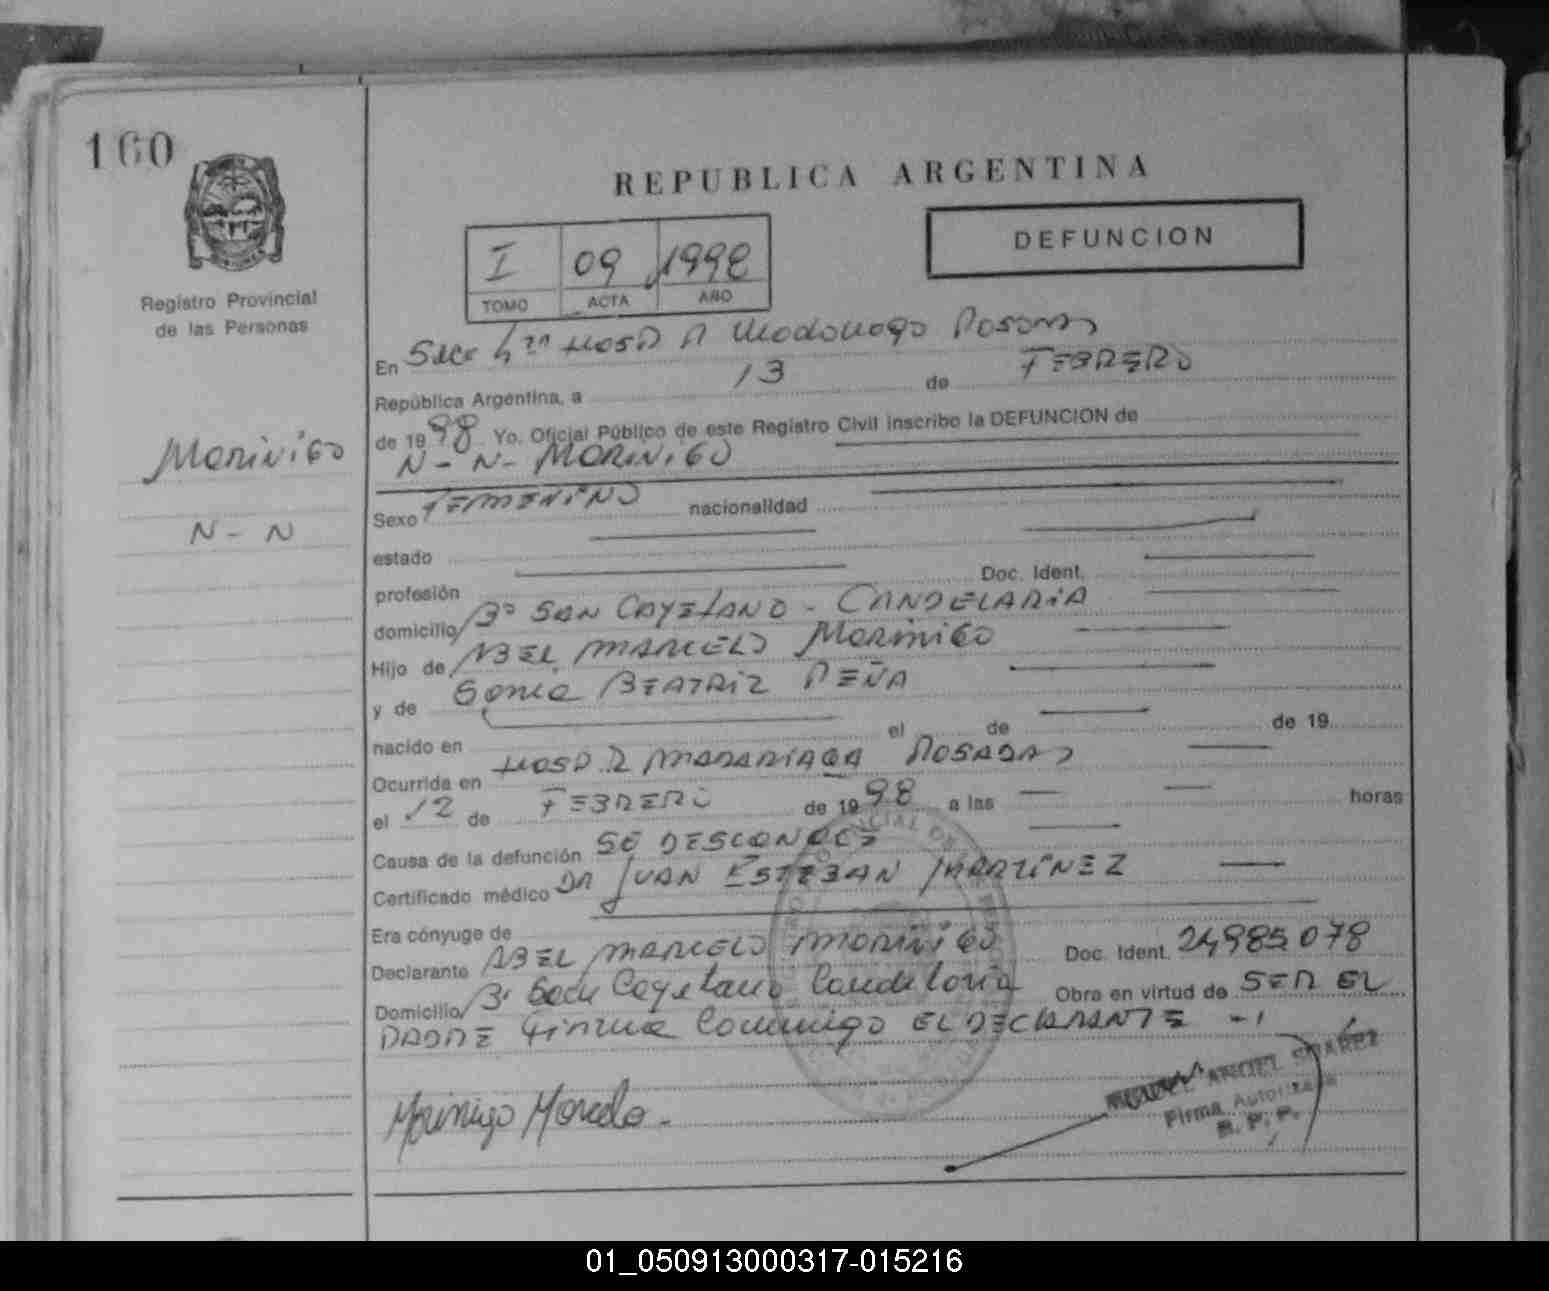 160
REPUBLICA ARGENTINA
Registro Provincial
de las Personas
I 09 1998
TOMO ACTA AÑO
DEFUNCION
En Secc 4ta Hosp R Madariaga Posadas
República Argentina, a 13 de FEBRERO
de 1998 Yo. Oficial Público de este Registro Civil inscribo la DEFUNCION de
N - N - MORINIGO
Morinigo
N - N
Sexo FEMENINO nacionalidad
estado
profesión Doc. Ident.
domicilio Bº SAN CAYETANO - CANDELARIA
Hijo de ABEL MARCELO Morinigo
y de Sonia BEATRIZ PEÑA
nacido en el de de 19
Ocurrida en HOSP. R MADARIAGA POSADAS
el 12 de FEBRERO de 1998 a las horas
Causa de la defunción SE DESCONOCE
Certificado médico DR JUAN ESTEBAN MARTINEZ
Era cónyuge de
Declarante ABEL MARCELO MORINIGO Doc. Ident. 24985078
Domicilio Bº San Cayetano Candelaria Obra en virtud de SER EL
PADRE Firma Conmigo EL DECLARANTE
Morinigo Marcelo
ANGEL SUAREZ
Firma Autorizada
R. P. P.
01_050913000317-015216